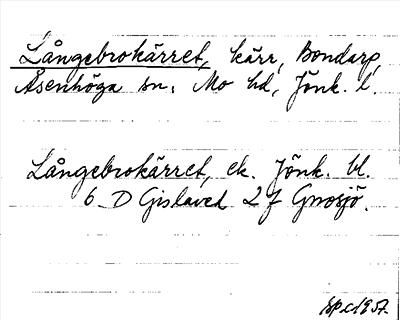 Långebrokärret, kärr, Bondarp,
Åsenhöga sn, Mo hd, Jönk. l.
Långebrokärret, ek. Jönk. bl.
6 D Gislaved 2 f Gnosjö.
1957.